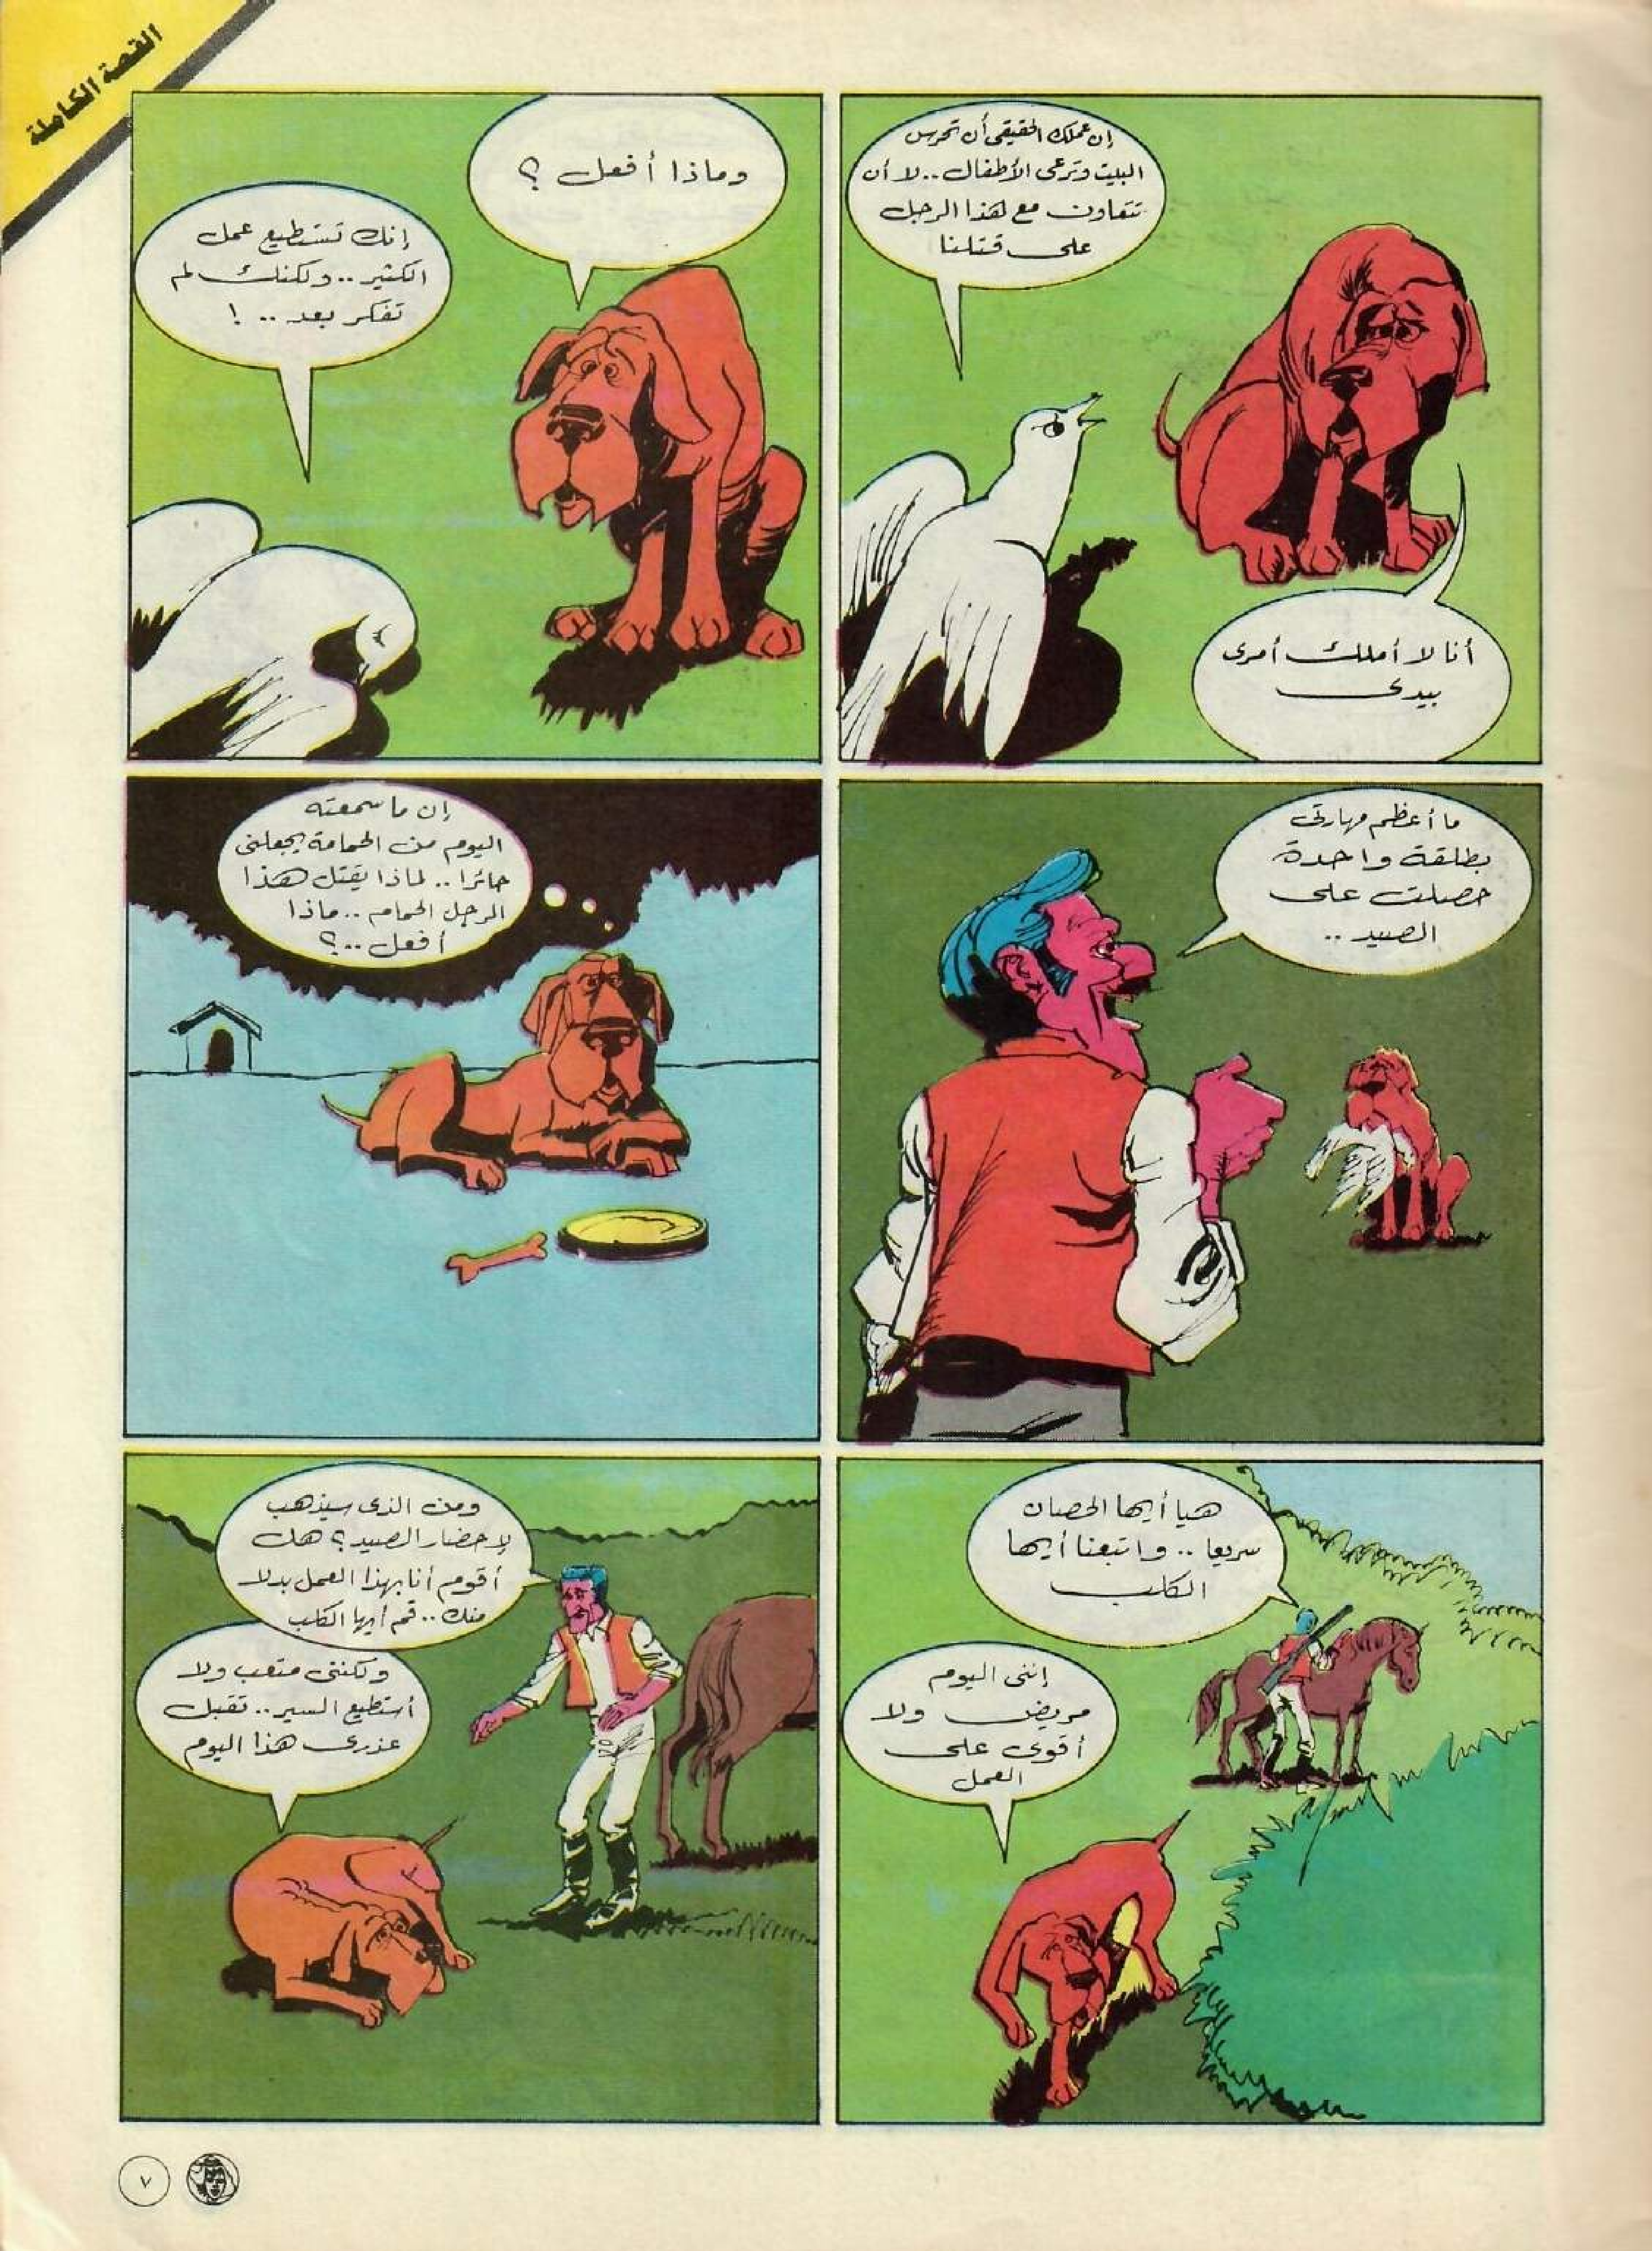 القصة الكاملة
إن عملك الحقيقي أن تحرس
البيت وترعى الأطفال .. لا أن
تتعاون مع هذا الرجل
على قتلنا
أنا لا أملك أمرى
بيدى
وماذا أفعل ؟
إنك تستطيع عمل
الكثير .. ولكنك لم
تفكر بعد .. !
ما أعظم مهارتى
بطلقة واحدة
حصلت على
الصيد ..
إن ما سمعته
اليوم من الحمامة يجعلنى
حائرا .. لماذا يقتل هذا
الرجل الحمام .. ماذا
أفعل .. ؟
هيا أيها الحصان
سريعا .. واتبعنا أيها
الكلب
إننى اليوم
مريض ولا
أقوى على
العمل
ومن الذى سيذهب
لإحضار الصيد ؟ هل
أقوم أنا بهذا العمل بدلا
منك .. قم أيها الكلب
ولكننى متعب ولا
أستطيع السير .. تقبل
عذرى هذا اليوم
٧